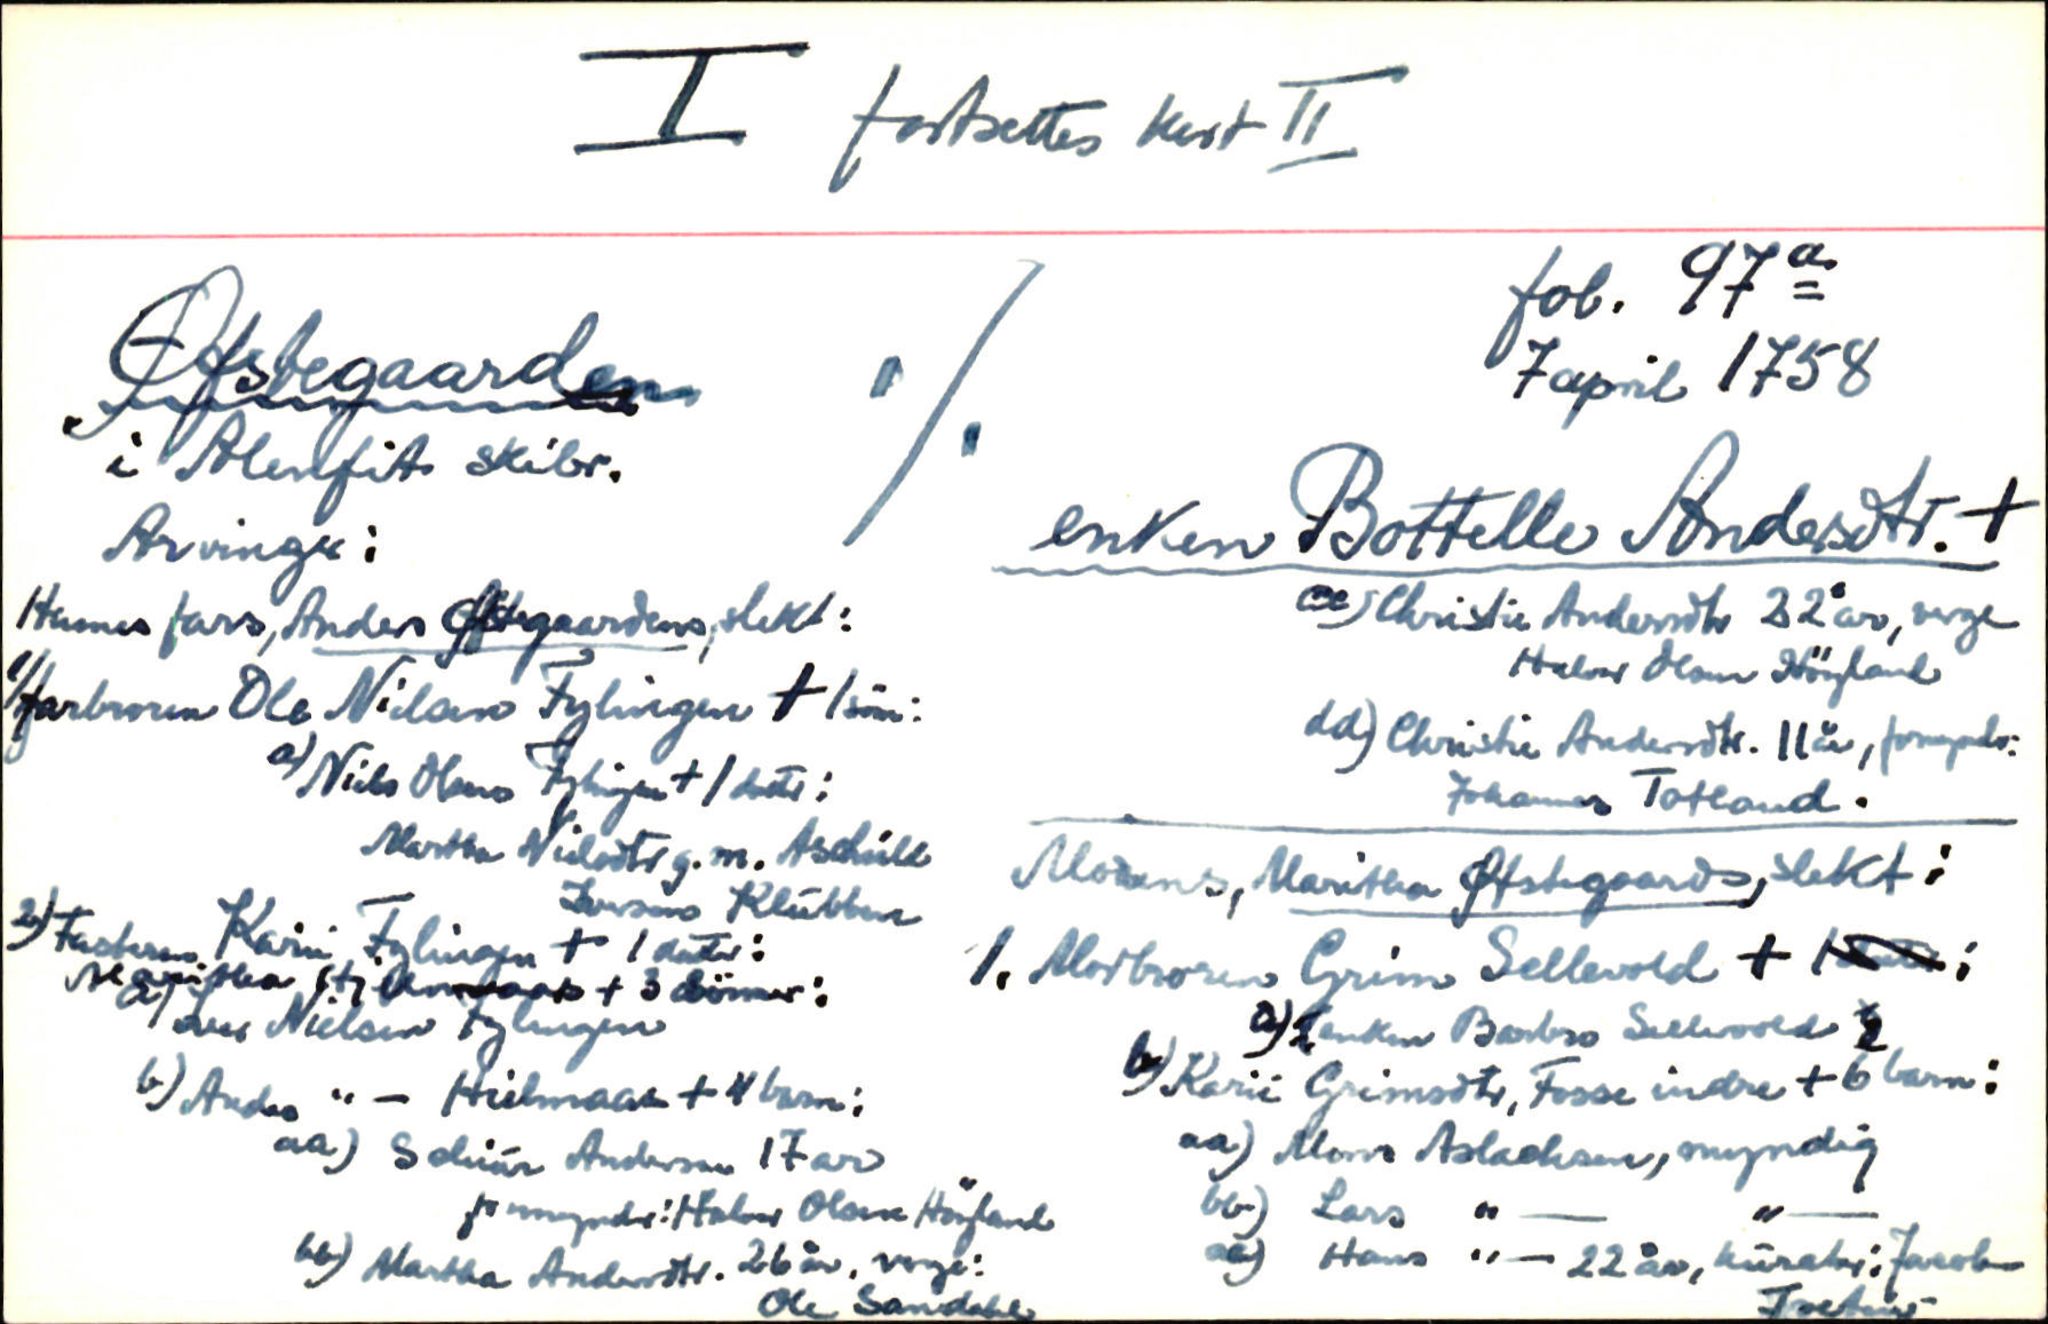 I fortsettes kort II
Øfstegaarden
i Alenfit skibr.
Arvinger:
Hennes fars, Anders Øfstegaardens, slekt:
1/ farbroren Ole Nielsen Fylingen + 1 sön:
a) Niels Olsens Fylingen + 1 datter:
Martha Nielsdtr g. m. Aschild
Iversens Klübben
2) Fasteren Karii Fylingen + 1 datter:
Maritha + 3 sönner:
a) Iver Nielsen Fylingen
b) Anders " — Hielmaas + 4 barn:
aa) Schiür Andersen 17 aar
formynder: Halvor Olsen Höyland
bb) Martha Andersdtr. 26 år, verge:
Ole Sandahl
%
fol. 97a
7 april 1758
enken Bottelle Andersdtr. +
cc) Christie Andersdtr 22 år, verge
Halvor Olsen Höyland
dd) Christie Andersdtr. 11 år, formynder:
Johannes Totland.
Morens, Maritha Øfstegaards, slekt:
1. Morbroren Grim Sellevold + 1 :
a) enken Barbro Sellevold
b) Karii Grimsdtr, Fosse indre + 6 barn:
aa) Mons Aslachsen, myndig
bb) Lars " — " —
cc) Hans " — 22 år, kürator: Jacob